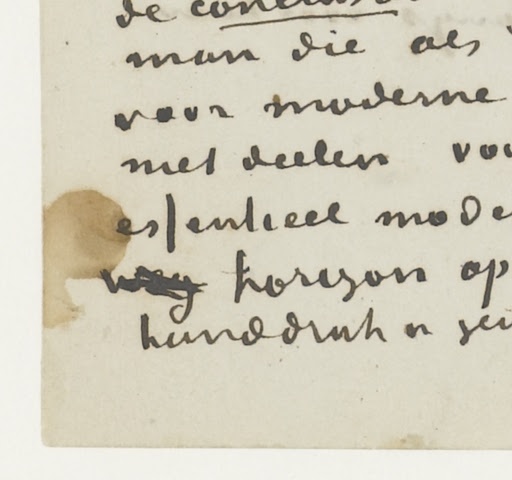 de
man die als
voor moderne
met deelen voo
essentieel mode
horizon op
handdruk en